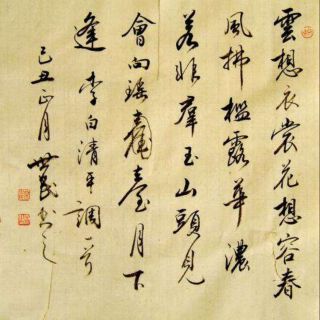 雲想衣裳花想容春
風拂檻露華濃
若非群玉山頭見
會向瑤臺月下
逢 李白清平調一首
己丑正月 世民書之